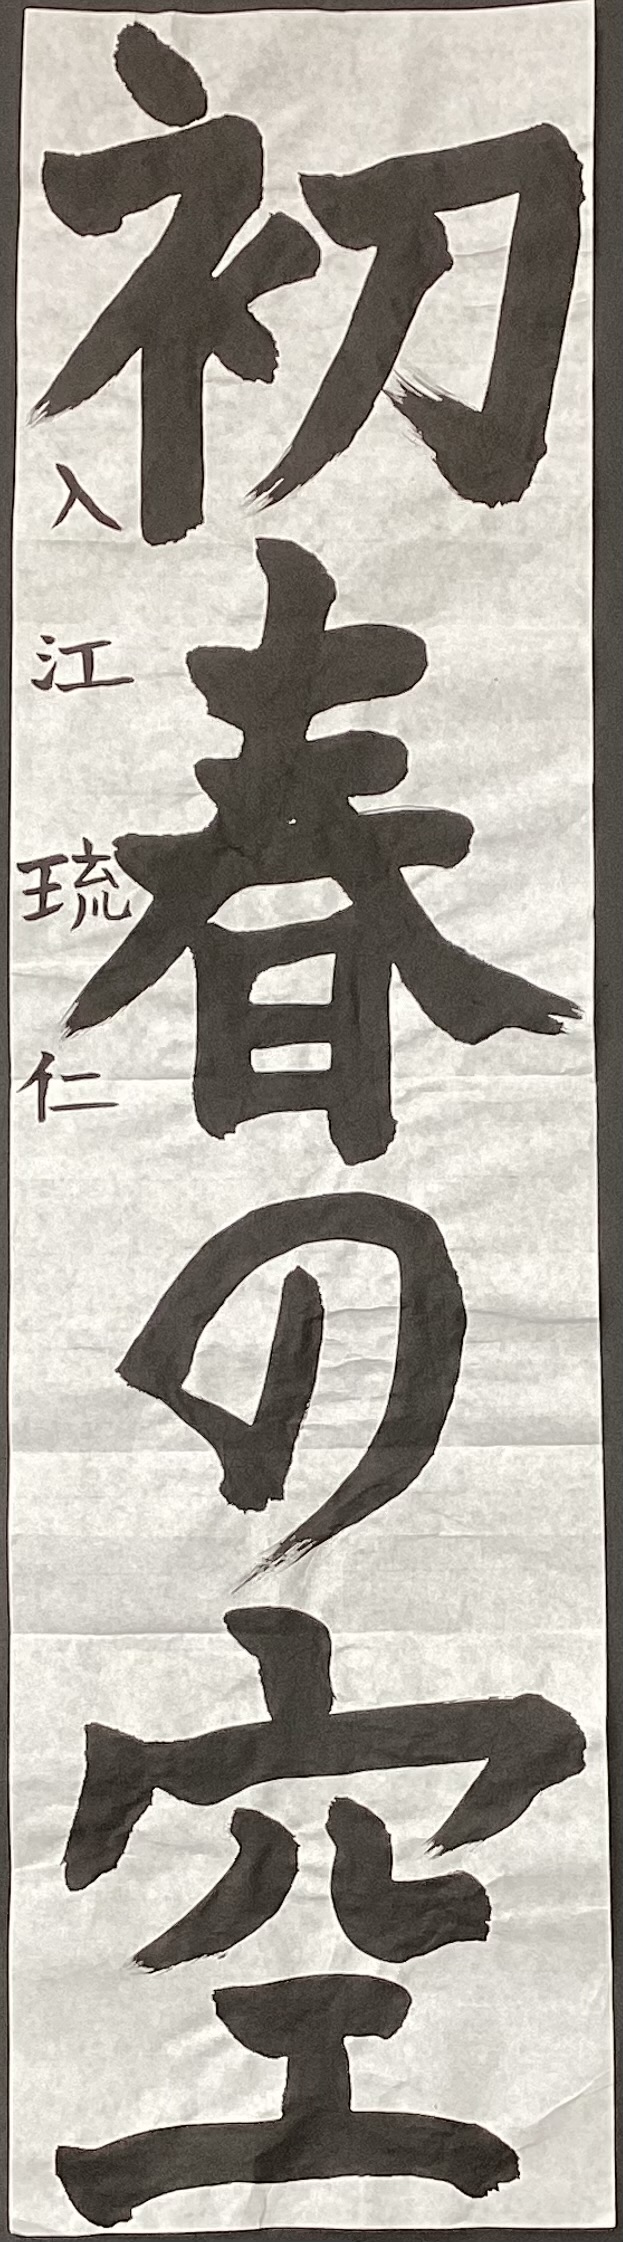 初春の空
入江琉仁